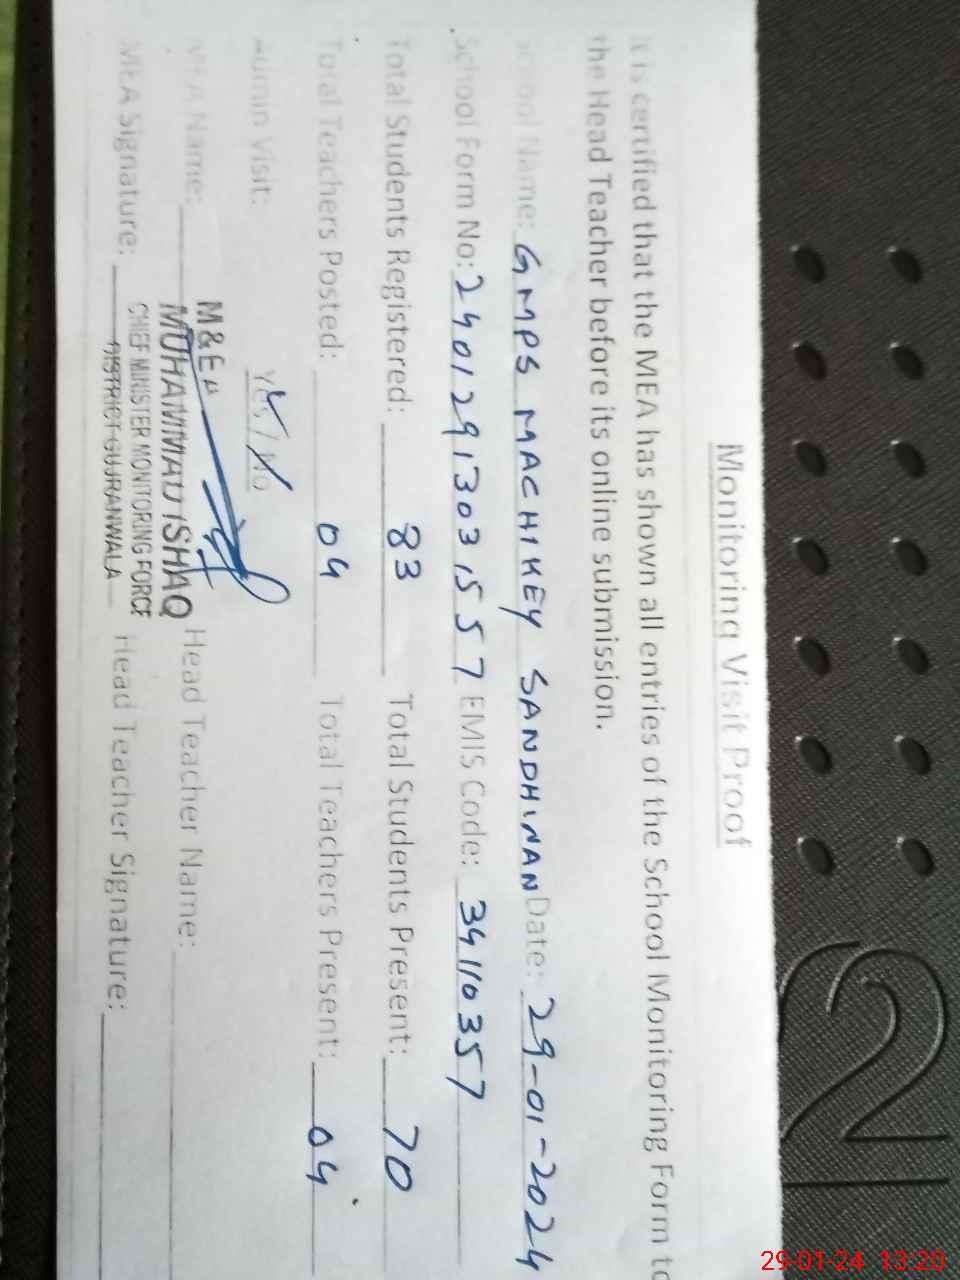 Monitoring Visit Proof
It is certified that the MEA has shown all entries of the School Monitoring Form to
the Head Teacher before its online submission.
School Name: GMPS MACHIKEY SANDHINAN Date: 29-01-2024
School Form No: 24012913031557 EMIS Code: 34110357
Total Students Registered: 83 Total Students Present: 70
Total Teachers Posted: 04 Total Teachers Present: 04
Admin Visit: Yes / No
MEA Name: Head Teacher Name:
MEA Signature: Head Teacher Signature:
M&EA
MUHAMMAD ISHAQ
CHIEF MINISTER MONITORING FORCE
DISTRICT GUJRANWALA
29-01-24 13:20